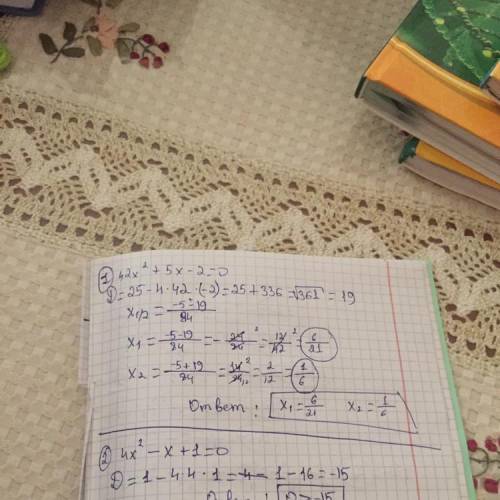 1) 42x² + 5x - 2 = 0
D = 25 - 4 · 42 · (-2) = 25 + 336 = √361 = 19
x₁/₂ = (-5 ± 19)/84
x₁ = (-5-19)/84 = - = 12/42 = 6/21
x₂ = (-5+19)/84 = = 2/12 = 1/6
Ответ: x₁ = 6/21 x₂ = 1/6
2) 4x² - x + 1 = 0
D = 1 - 4 · 4 · 1 = 1 - 16 = -15